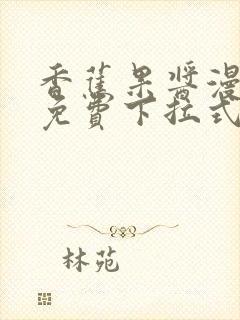 香蕉果酱漫
免费下拉式
林苑